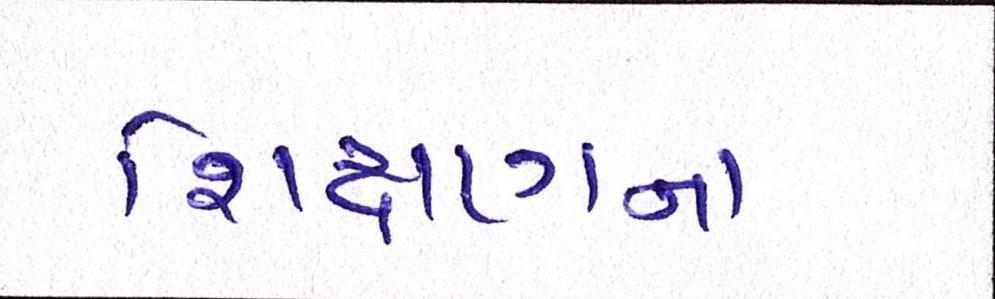 શિક્ષણના